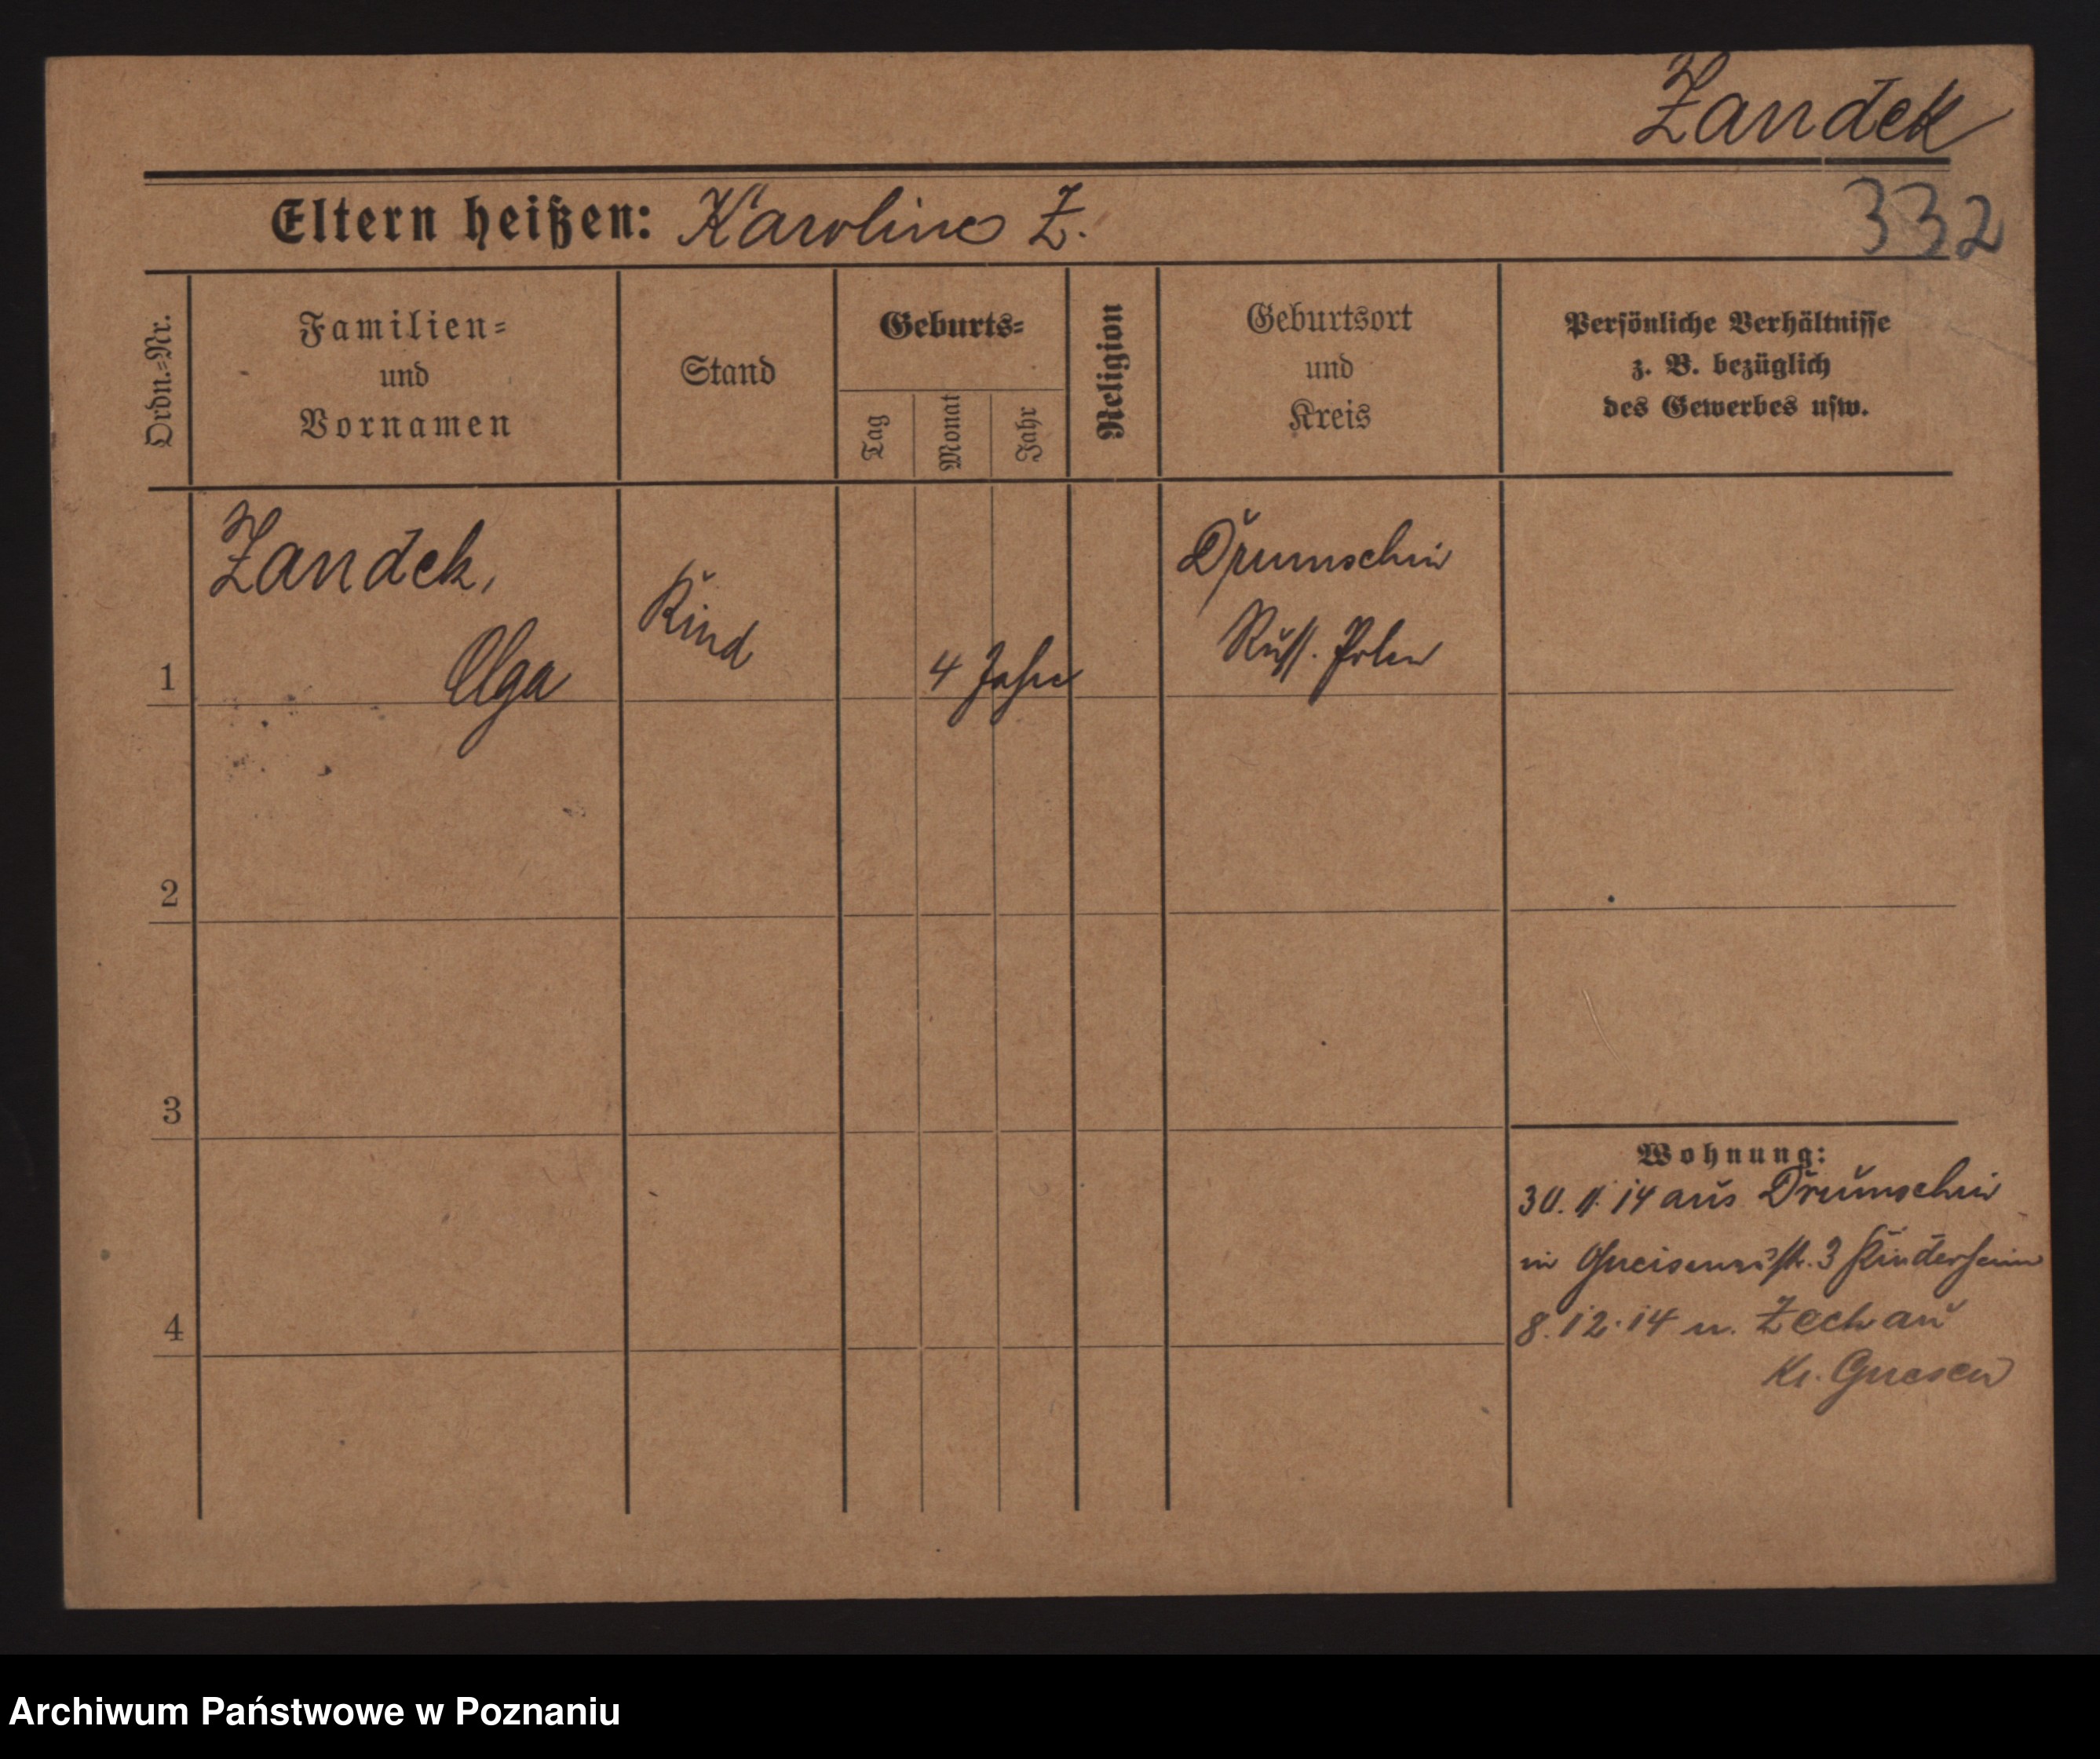 Zandek
Eltern heißen: Karoline Z.
332
Ordn.-Nr.
Familien-
und
Vornamen
Stand
Geburts-
Tag
Monat
Jahr
Religion
Geburtsort
und
Kreis
Persönliche Verhältnisse
z. B. bezüglich
des Gewerbes usw.
1
Zandek,
Olga
Kind
4 Jahre
Drumschin
Russ. Polen
2
3
4
Wohnung:
30. 11. 14 aus Drumschin
in Gneisenaustr. 3 Kinderheim
8. 12. 14 n. Zechau
Kr. Gnesen
Archiwum Państwowe w Poznaniu